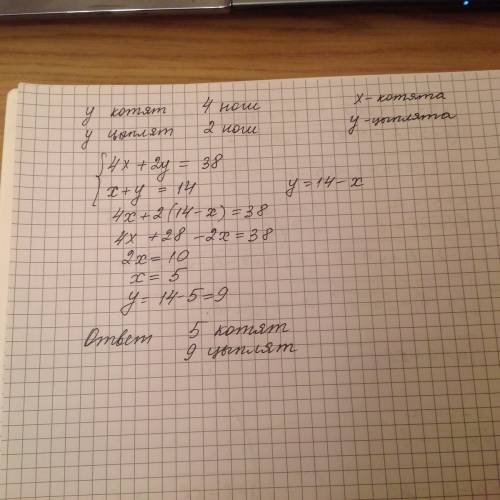 у котят 4 ног x - котята
у цыплят 2 ног y - цыплята
4x + 2y = 38
x + y = 14 y = 14 - x
4x + 2(14 - x) = 38
4x + 28 - 2x = 38
2x = 10
x = 5
y = 14 - 5 = 9
Ответ 5 котят
9 цыплят